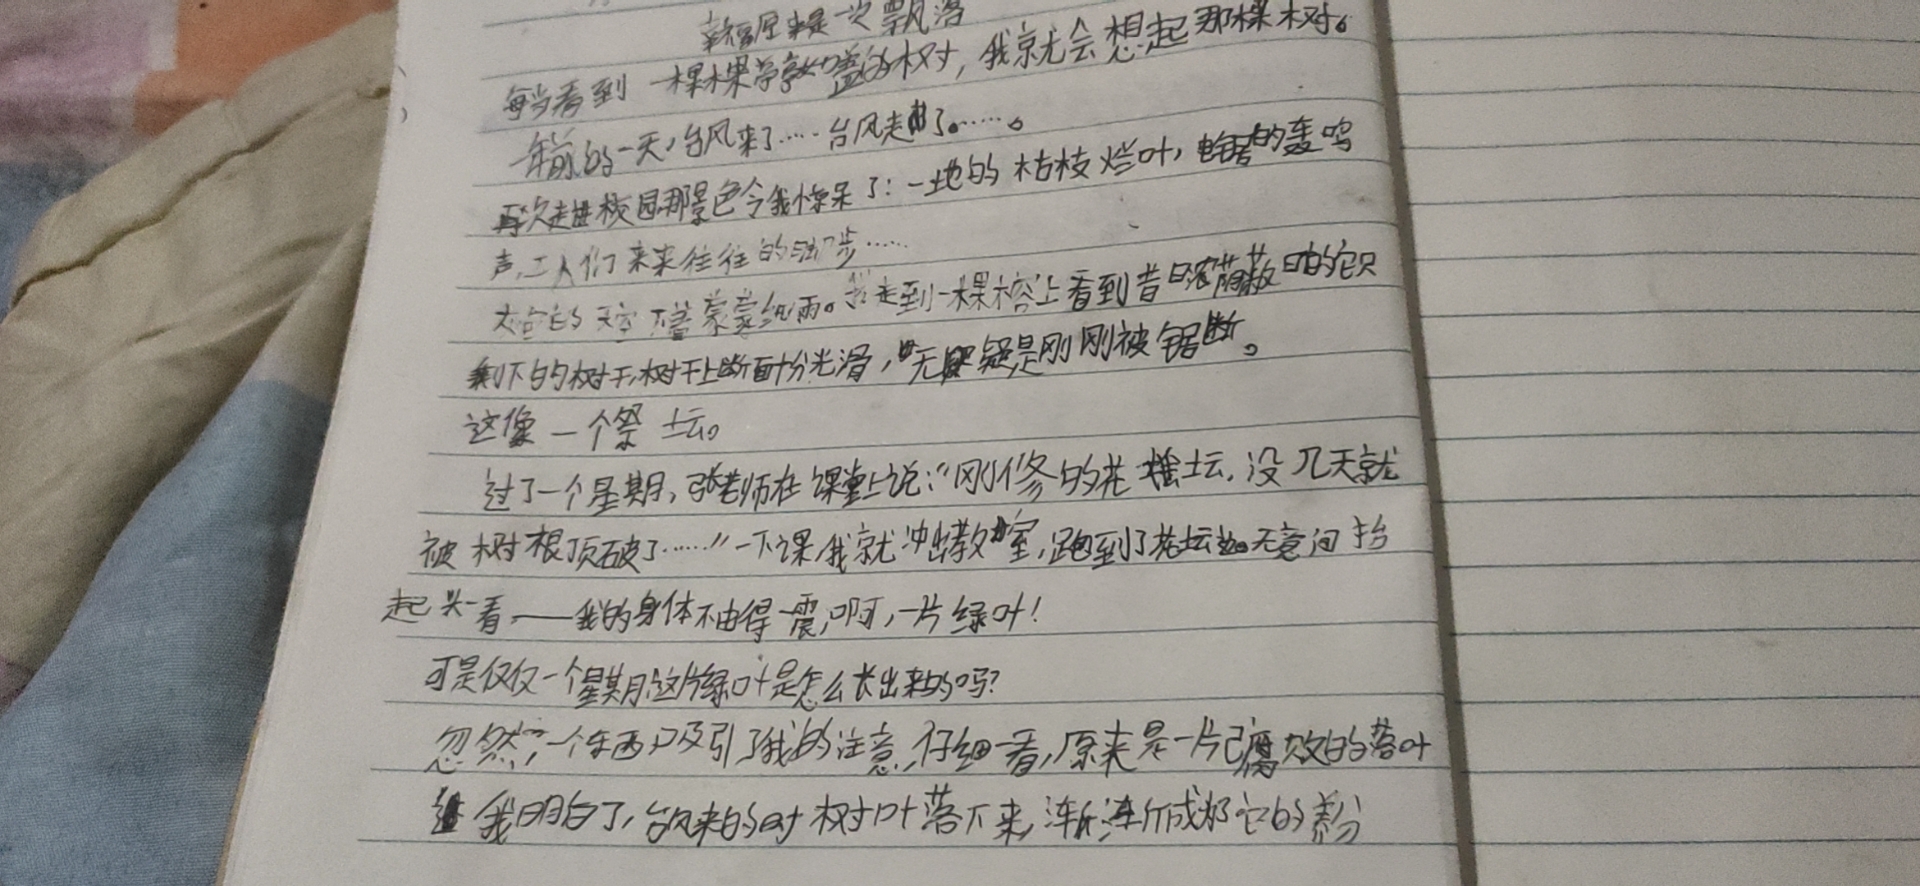 幸福原来是一次飘落
每当看到一棵棵亭亭如盖的树，我就会想起那棵树。
年前的一天，台风来了……台风走了。……。
再次走进校园那景色令我惊呆了：一地的枯枝烂叶，电锯的轰鸣
声，工人们来来往往的脚步……
灰色的天空下着蒙蒙细雨。我走到一棵榕上看到昔日浓荫蔽日的它只
剩下的树干，树干上断面十分光滑，无疑是刚刚被锯断。
这像一个祭坛。
过了一个星期，张老师在课堂上说：“刚修的花坛，没几天就
被树根顶破了……”一下课我就冲出教室，跑到了花坛边。无意间抬
起头一看，——我的身体不由得一震，啊，一片绿叶！
可是仅仅一个星期这片绿叶是怎么长出来的吗？
忽然，一个东西吸引了我的注意，仔细一看，原来是一片已腐败的落叶
我明白了，台风来的时树叶落下来，渐渐成都它的养分